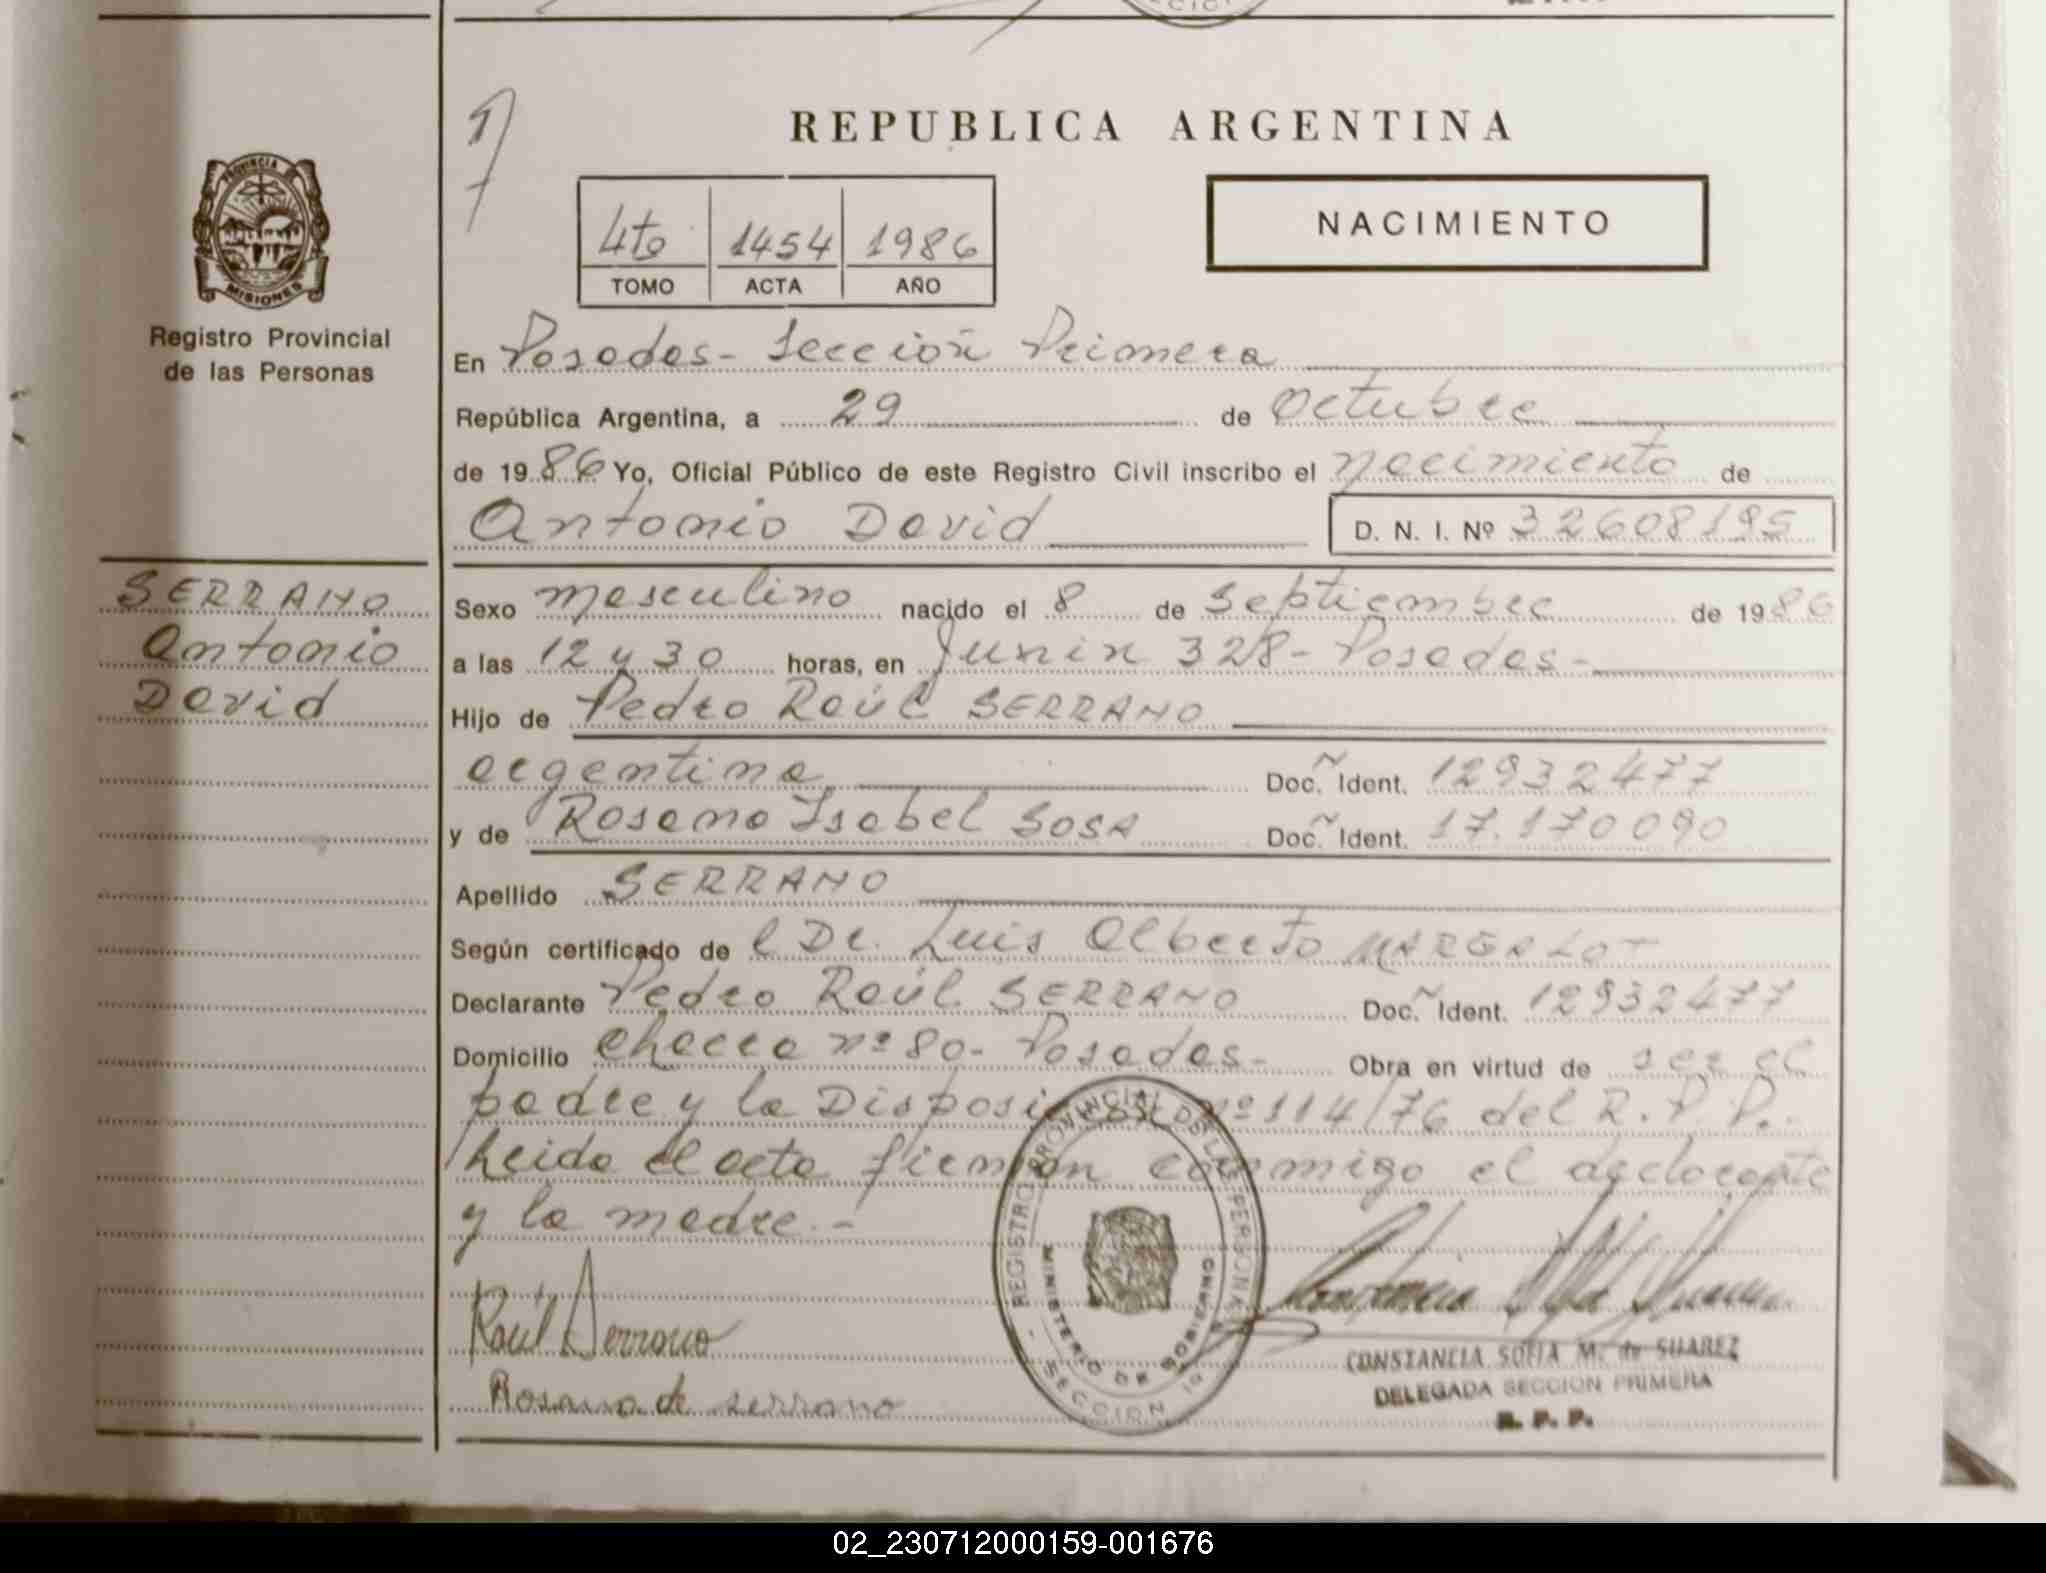 REPUBLICA ARGENTINA
PROVINCIA DE
MISIONES
Registro Provincial
de las Personas
4to 1454 1986
TOMO ACTA AÑO
NACIMIENTO
En Posadas - Sección Primera
República Argentina, a 29 de Octubre
de 1986 Yo, Oficial Público de este Registro Civil inscribo el nacimiento de
Antonio David D. N. I. Nº 32608195
SERRANO
Antonio
David
Sexo masculino nacido el 8 de Septiembre de 1986
a las 12 y 30 horas, en Junin 328 - Posadas -
Hijo de Pedro Raúl SERRANO
argentina Doc. Ident. 12932477
y de Rosana Isabel SOSA Doc. Ident. 17.170090
Apellido SERRANO
Según certificado de l Dr. Luis Alberto
Declarante Pedro Raúl SERRANO Doc. Ident. 12932477
Domicilio Checca nº 80 - Posadas - Obra en virtud de ser el
padre y la Disposición nº 114/76 del R. P. P. -
Leida el acta firman conmigo el declarante
y la madre. -
Raúl Serrano
Rosana de serrano
REGISTRO PROVINCIAL DE LAS PERSONAS
MINISTERIO DE GOBIERNO
SECCION 1ª
CONSTANCIA SOFIA M. de SUAREZ
DELEGADA SECCION PRIMERA
R. P. P.
02_230712000159-001676